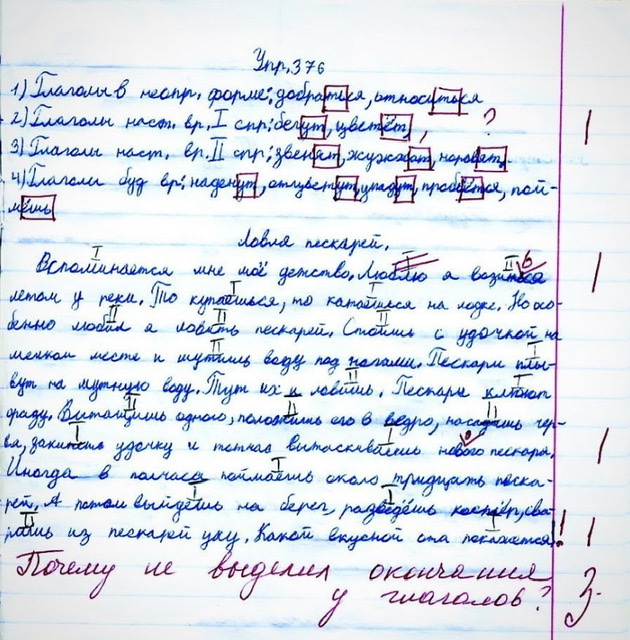 Упр. 376
1) Глаголы в неопр. форме: добраться, относиться
2) Глаголы наст. вр. I спр: бегут, цветёт, ?
3) Глаголы наст. вр. II спр: звенят, жужжат, норовят.
4) Глаголы буд вр: наденут, отцветут, упадут, пробьётся, пой-
мёшь
Ловля пескарей.
Вспоминается мне моё детство. Люблю я возиться
летом у реки. То купаешься, то катаешься на лодке. Но осо-
бенно любил я ловить пескарей. Стоишь с удочкой на
мелком месте и мутишь воду под ногами. Пескари плы-
вут на мутную воду. Тут их и ловишь. Пескари клюют
сразу. Вытащишь одного, положишь его в ведро, насадишь чер-
вя, закинешь удочку и тотчас вытаскиваешь нового пескаря.
Иногда в полчаса поймаешь около тридцать песка-
рей. А потом выйдешь на берег, разведёшь костёр, сва-
ришь из пескарей уху. Какой вкусной она покажется!
Почему не выделил окончания
у глаголов? 3-